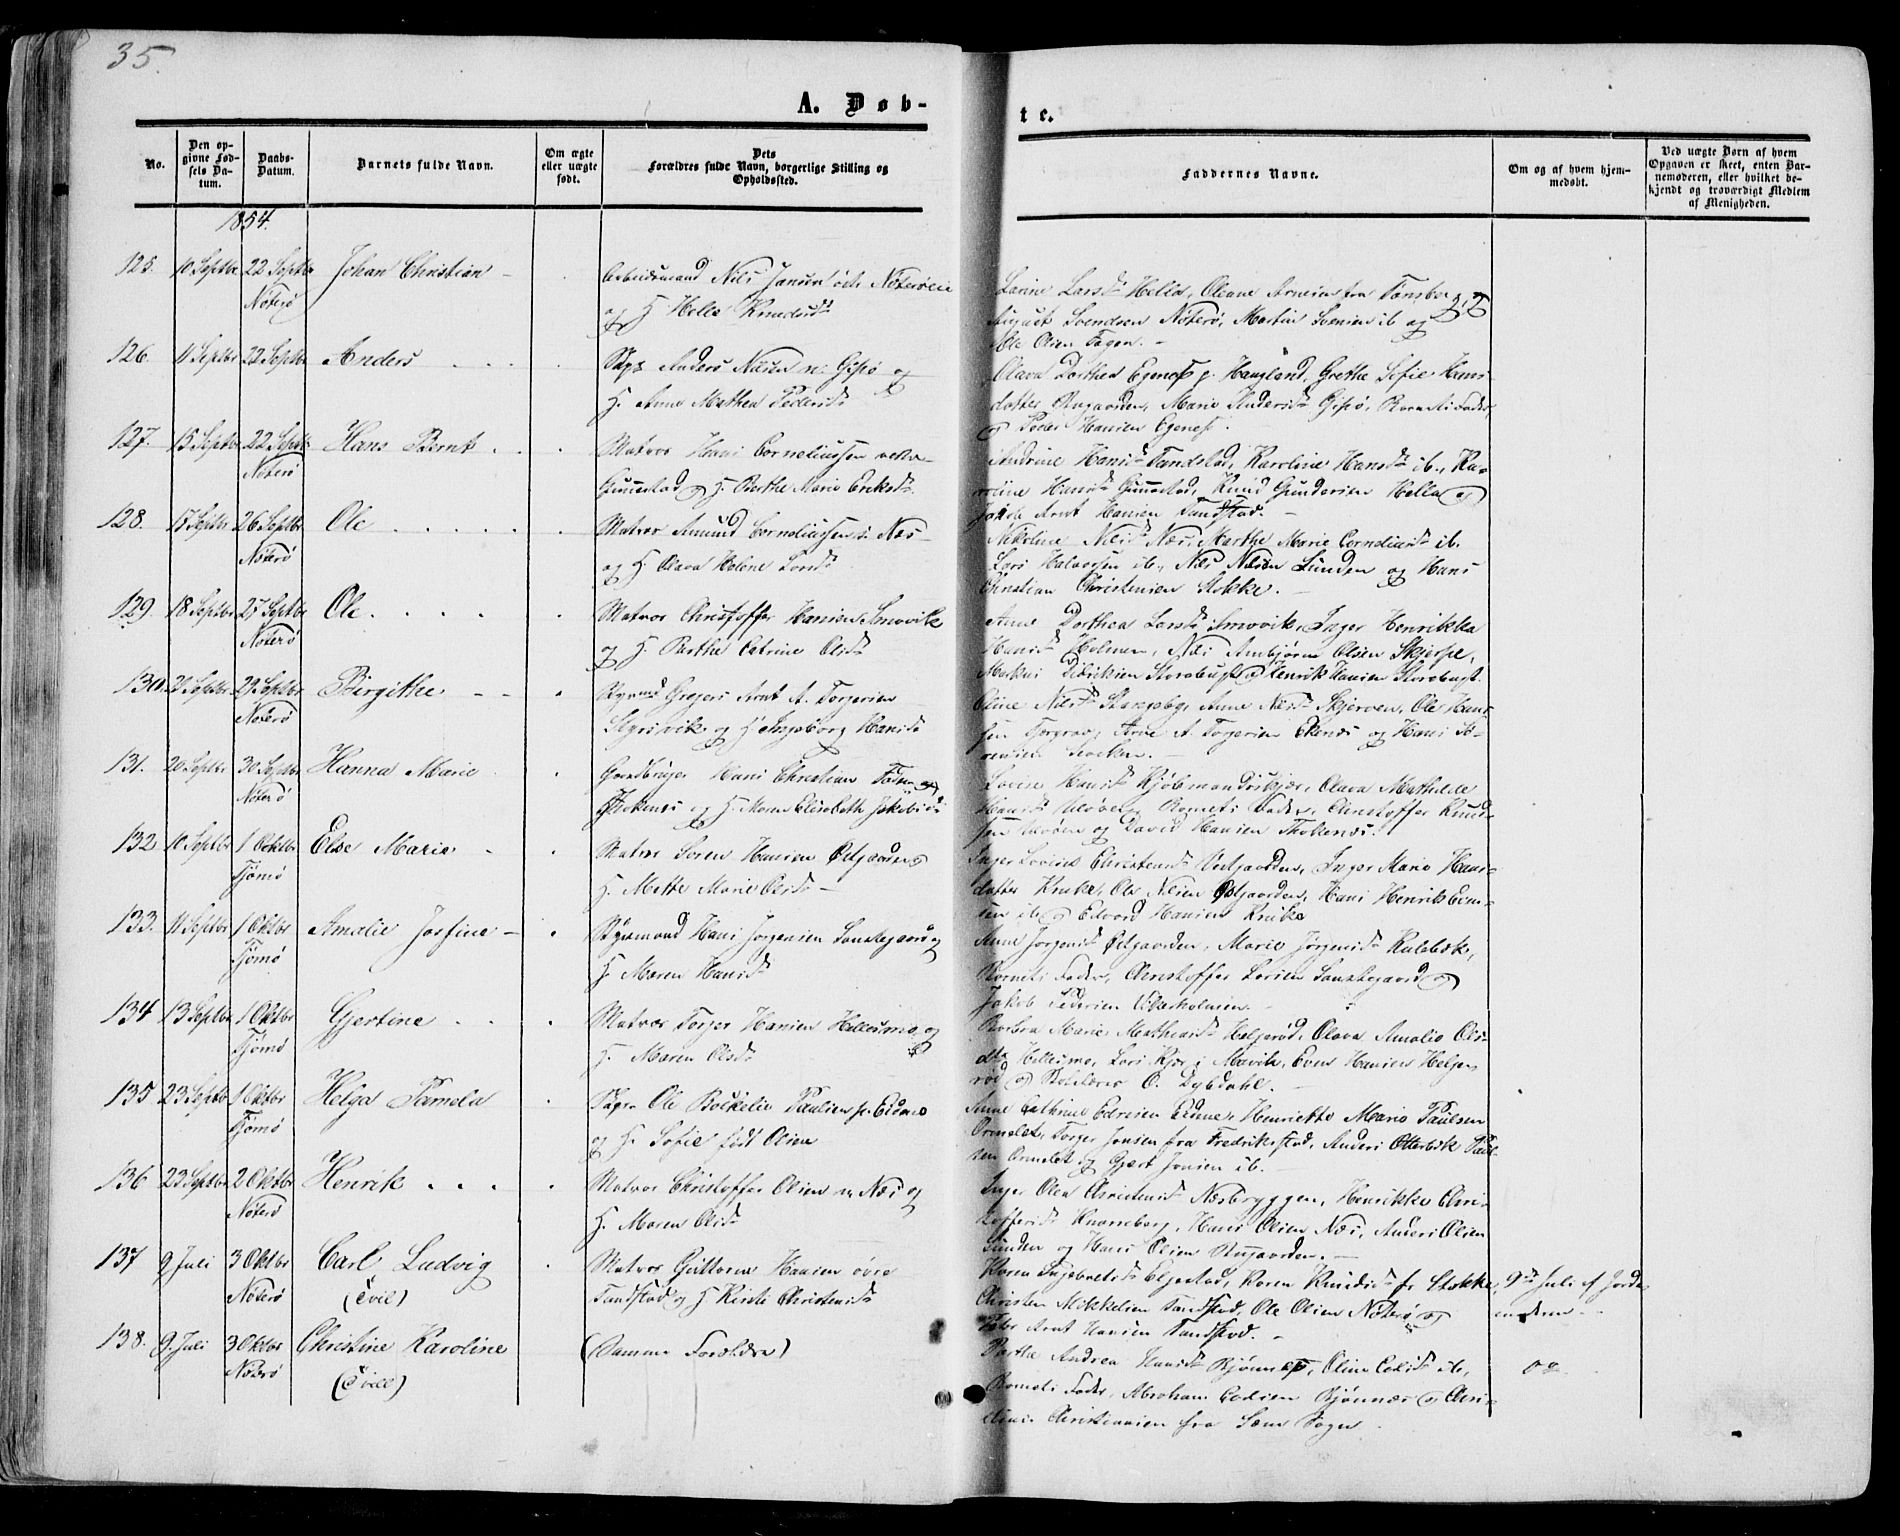 35.
A. Døb-
te.
No.
Den op-
givne Fød-
sels Da-
tum.
Daabs-
Datum.
Barnets fulde Navn.
Om ægte
eller uægte
født.
Dets
Forældres fulde Navn, borgerlige Stilling og
Opholdssted.
Faddernes Navne.
Om og af hvem hjem-
medøbt.
Ved uægte Børn af hvem
Opgaven er skeet, enten Bar-
nemoderen, eller hvilket be-
kjendt og troværdigt Medlem
af Menigheden.
1854.
125. 10 Septbr 22 Septbr Johan Christian -
Nøterø
Arbeidsmand Nils Jansen Nøterøeie
og H. Helle Knudsdt
Larine Larsdt Hella, Oleane Arnesen fra Tønsberg,
August Svendsen Nøterø, Martin Svensen ib og
Ole Olsen Fagen. -
126. 11 Septbr 22 Septbr Anders
Anders Nilsen n. Gipø og
H. Anne Mathea Pedersdt
Olava Dorthea Egenes p. Haugland, Grethe Sofie Hans-
datter Rugaarden, Marie Andersdt Gipø, Barnets Fader
og Peder Hansen Egenes.
127. 15 Septbr 22 Septbr Hans Bernt
Nøterø
Matros Hans Corneliussen
Gunnestad og H. Berthe Marie Eriksdt.
Andrine Hansdt Tandstad, Karoline Hansdt ib., Ka-
roline Hansdt Gunnestad, Knud Gundersen Hella og
Jakob Arnt Hansen Tandstad. -
128. 17 Septbr 26 Septbr Ole
Nøterø
Matros Amund Corneliussen Næs -
og H. Olava Helene Larsdt
Nikoline Nilsdt Næs, Marthe Marie Corneliusdt ib.
Lars Halvorsen ib., Nils Nilsen Lunden og Hans
Christian Christensen Stokke. -
129. 18 Septbr 27 Septbr Ole.
Nøterø
Matros Christoffer Hansen Smovik
og H. Berthe Catrine Olsdt
Anne Dorthea Larsdt Smovik, Inger Henrikka
Hansdt Holmen, Nils Ambjørn Olsen Skjerpe,
Markus Didriksen Storebugt og Henrik Hansen Storebugt.
130. 20 Septbr 29 Septbr Birgithe
Nøterø
Styrmd Gregers Arnt A. Torgersen
Styrsvik og H. Ingeborg Hansdt
Oline Nilsdt Stangeby, Anne Nilsdt Skjerven, Ole Han-
sen Torgrav, Arne A. Torgersen Ekenes og Hans Sø-
rensen
131. 20 Septbr 30 Septbr Hanna Marie
Nøterø
Gaardbruger Hans Christian
og H. Maren Elisabeth Jakobsdt
Lovise Hansdt Kjøbmandskjær, Olava Mathilde
Hansdt Barnets Fader, Christoffer Knud-
sen og David Hansen Tholsnes.
132 10 Septbr 1 Oktbr Else Marie
Tjømø
Matros Søren Hansen Østgaarden og
H. Mette Marie Olsdt -
Inger Lovise Christensdt Østgaarden, Inger Marie Hans-
datter Kruke, Ole Nilsen Østgaarden, Hans Henrik Even-
sen ib. og Edvard Hansen Kruke
133. 11 Septbr 1 Oktbr Amalie Josfine -
Tjømø
Styrmand Hans Jørgensen Sønstegaard og
H. Maren Hansdt
Anne Jørgensdt Østgaarden, Marie Jørgensdt Kulebæk,
Barnets Fader, Christoffer Larsen Sønstegaard og
Jakob Pedersen Vilkesholmen. -
134 13 Septbr 1 Oktbr Gjertine
Tjømø
Matros Torger Hansen Hellesmo og
H. Maren Olsdt
Barbra Marie Mathiasdt Helgerød, Olava Amalie Ols-
dtr Hellesmo, Lars Kjær i Mavik, Even Hansen Helge-
rød og Skolelærer O. Dybdahl. -
135 23 Septbr 1 Oktbr Helga Pamela
Tjømø
Ole Bockelie Paulsen fr. Eidene
og H. Sofie født Olsen
Anne Cathrine Edresen Eidene, Henriette Marie Paulsen
Ormelet, Torger Jensen fra Fredrikstad, Anders Otterbek Paul-
sen Ormelet og Gjert Jensen ib. -
136 23 Septbr 2 Oktbr Henrik
Nøterø
Matros Christoffer Olsen n. Næs og
H. Maren Olsdt
Inger Olea Christensdt Næsbryggen, Henrikke Chri-
stoffersdt Knarreberg, Hans Olsen Næs, Anders Olsen
Lunden og Hans Olsen Rugaarden. -
137 9 Juli 3 Oktbr Carl Ludvig
Nøterø (Tvill)
Matros Guttorm Hansen øvre
Tandstad og H. Kirsti Christensdt
Karen Ingebretsdt Elgestad, Karen Knudsdt fr Stokke,
Christen Mikkelsen Tandstad, Ole Olsen Nøterø og
Peder Arnt Hansen Tandstad. -
9de Juli af Jorde-
moderen -
138. 9 Juli 3 Oktbr Christine Karoline
Nøterø (Tvill)
(Samme Forældre)
Berthe Andrea Hansdt Bjønnes, Oline Eilsdt ib,
Barnets Fader, Abraham Edisen Bjønnæs og Chri-
stian Christiansen fra Sem Sogn.
do